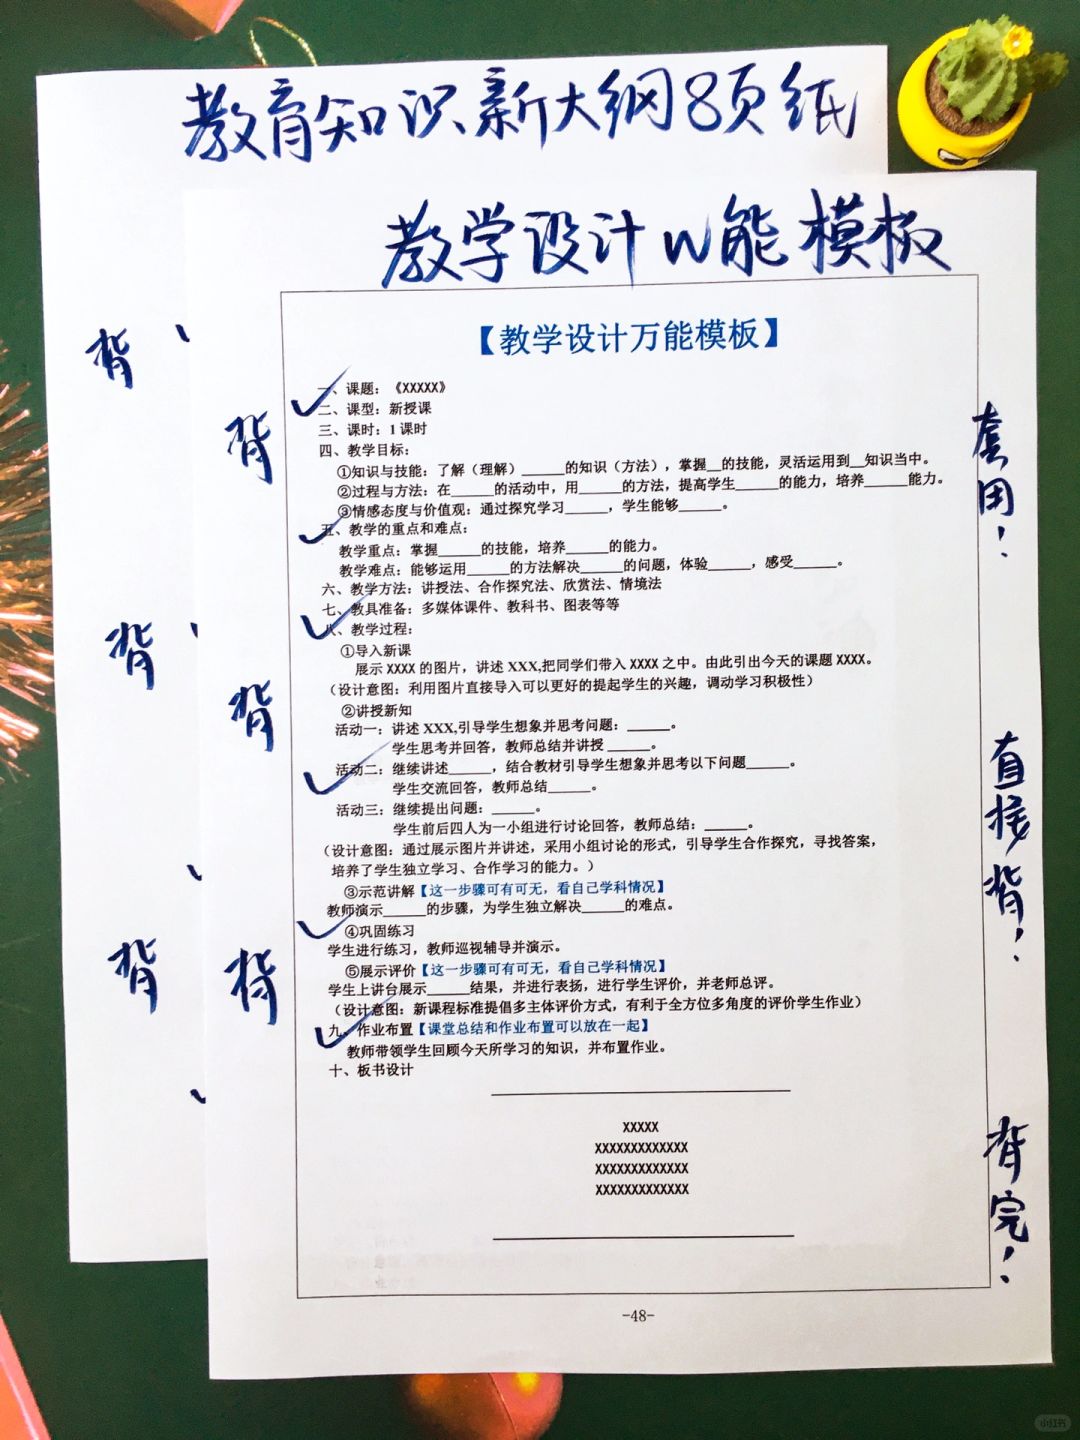 教育知识新大纲8页纸
教学设计W能模板
背
背
背
背
背
背
套用！
直接背！
背完！
【教学设计万能模板】
一、课题：《XXXXX》
二、课型：新授课
三、课时：1课时
四、教学目标：
①知识与技能：了解（理解）______的知识（方法），掌握__的技能，灵活运用到__知识当中。
②过程与方法：在______的活动中，用______的方法，提高学生______的能力，培养______能力。
③情感态度与价值观：通过探究学习______，学生能够______。
五、教学的重点和难点：
教学重点：掌握______的技能，培养______的能力。
教学难点：能够运用______的方法解决______的问题，体验______，感受______。
六、教学方法：讲授法、合作探究法、欣赏法、情境法
七、教具准备：多媒体课件、教科书、图表等等
八、教学过程：
①导入新课
展示 XXXX 的图片，讲述 XXX,把同学们带入 XXXX 之中。由此引出今天的课题 XXXX。
（设计意图：利用图片直接导入可以更好的提起学生的兴趣，调动学习积极性）
②讲授新知
活动一：讲述 XXX,引导学生想象并思考问题：______。
学生思考并回答，教师总结并讲授 ______。
活动二：继续讲述______，结合教材引导学生想象并思考以下问题______。
学生交流回答，教师总结______。
活动三：继续提出问题：______。
学生前后四人为一小组进行讨论回答，教师总结：______。
（设计意图：通过展示图片并讲述，采用小组讨论的形式，引导学生合作探究，寻找答案，
培养了学生独立学习、合作学习的能力。）
③示范讲解【这一步骤可有可无，看自己学科情况】
教师演示______的步骤，为学生独立解决______的难点。
④巩固练习
学生进行练习，教师巡视辅导并演示。
⑤展示评价【这一步骤可有可无，看自己学科情况】
学生上讲台展示______结果，并进行表扬，进行学生评价，并老师总评。
（设计意图：新课程标准提倡多主体评价方式，有利于全方位多角度的评价学生作业）
九、作业布置【课堂总结和作业布置可以放在一起】
教师带领学生回顾今天所学习的知识，并布置作业。
十、板书设计
XXXXX
XXXXXXXXXXXXX
XXXXXXXXXXXXX
XXXXXXXXXXXXX
-48-
小红书